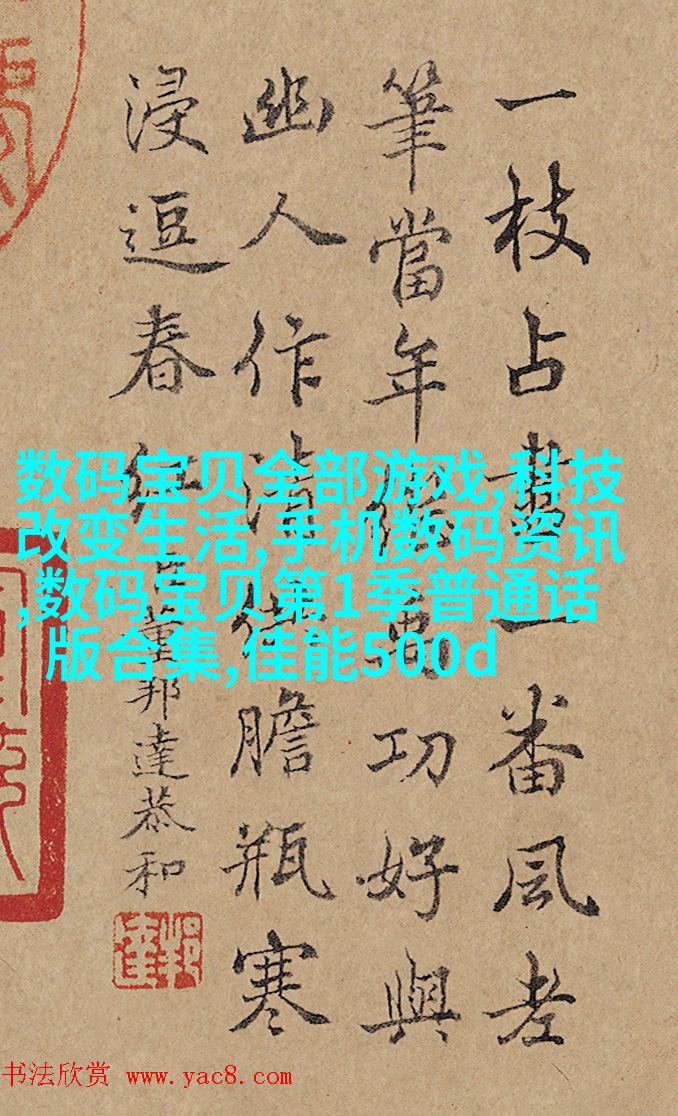 一枝占一番風老
筆當年功好與
幽人作清供膽瓶寒
浸逗春紅臣董邦達恭和
数码宝贝全部游戏,科技
改变生活,手机数码资讯
,数码宝贝第1季普通话
版合集,佳能500d
书法欣赏 www.yac8.com